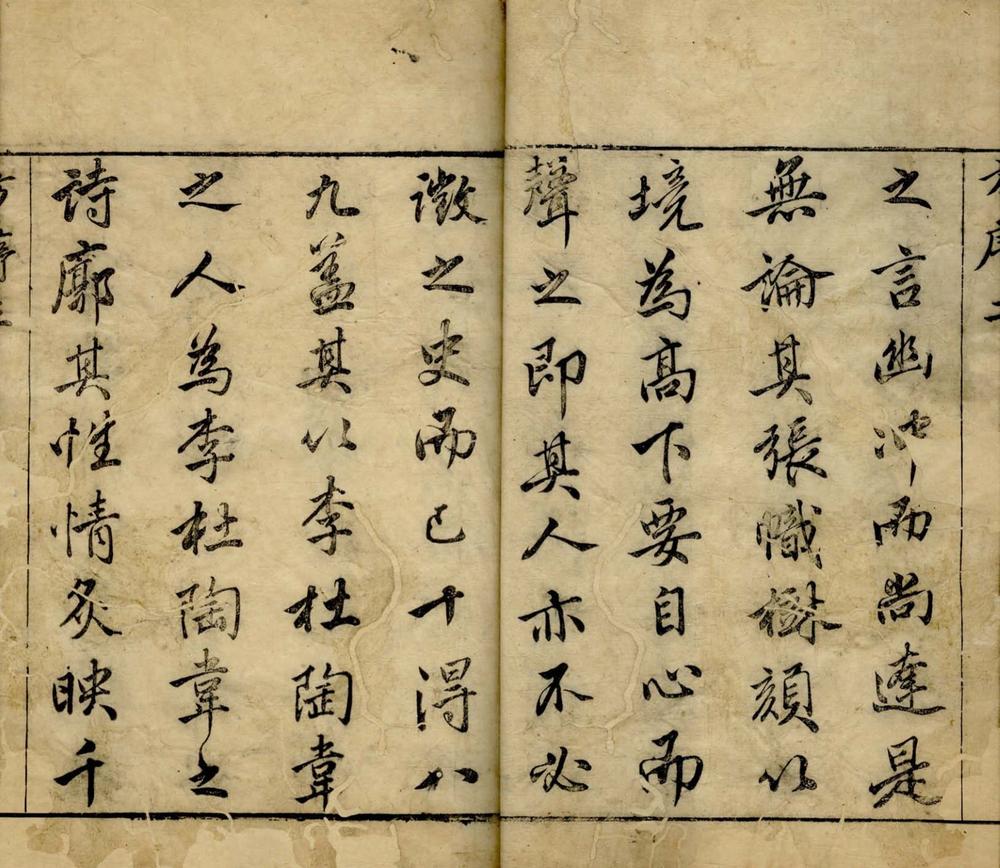 之言幽冲而尚達是
無論其張幟樹頦以
境為高下要自心而
聲之即其人亦不必
徵之史而已十得八
九蓋其以李杜陶韋
之人為李杜陶韋之
詩廓其惟情炙映千